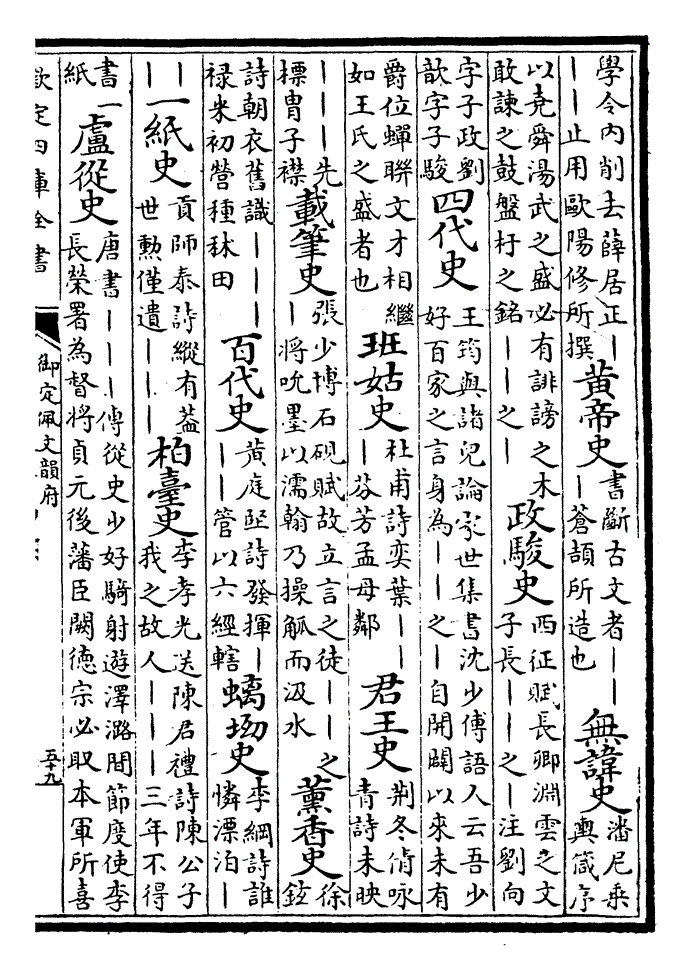 學令内削去薛居正｜
｜｜止用歐陽修所撰
黄帝史
書斷古文者｜｜
｜蒼頡所造也
無諱史
潘尼乗
輿箴序
以堯舜湯武之盛必有誹謗之木
敢諫之鼓盤杅之銘｜｜｜之｜
政駿史
西征賦長卿淵雲之文
子長｜｜之｜注劉向
字子政劉
歆字子駿
四代史
王筠與諸兒論家世集書沈少傅語人云吾少
好百家之言身為｜｜之｜自開闢以來未有
爵位蟬聯文才相繼
如王氏之盛者也
班姑史
杜甫詩奕葉｜｜
｜芬芳孟母鄰
君王史
荆冬倩咏
青詩未映
｜｜｜先
標胄子襟
載筆史
張少博石硯賦故立言之徒｜｜之
｜將吮墨以濡翰乃操觚而汲水
薰香史
徐
鉉
詩朝衣舊識｜｜｜
禄米初營種秫田
百代史
黄庭堅詩發揮｜
｜｜管以六經轄
螭坳史
李綱詩誰
憐漂泊｜
｜｜
一紙史
貢師泰詩縱有葢
世勲僅遺｜｜｜
柏臺史
李孝光送陳君禮詩陳公子
我之故人｜｜｜三年不得
書一
紙
盧從史
唐書｜｜｜傳從史少好騎射遊澤潞間節度使李
長榮署為督將貞元後藩臣闕德宗必取本軍所喜
欽定四庫全書
御定佩文韻府
五十九